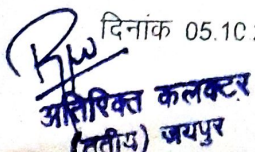 दिनांक 05.10
अतिरिक्त कलक्टर
(तृतीय) जयपुर